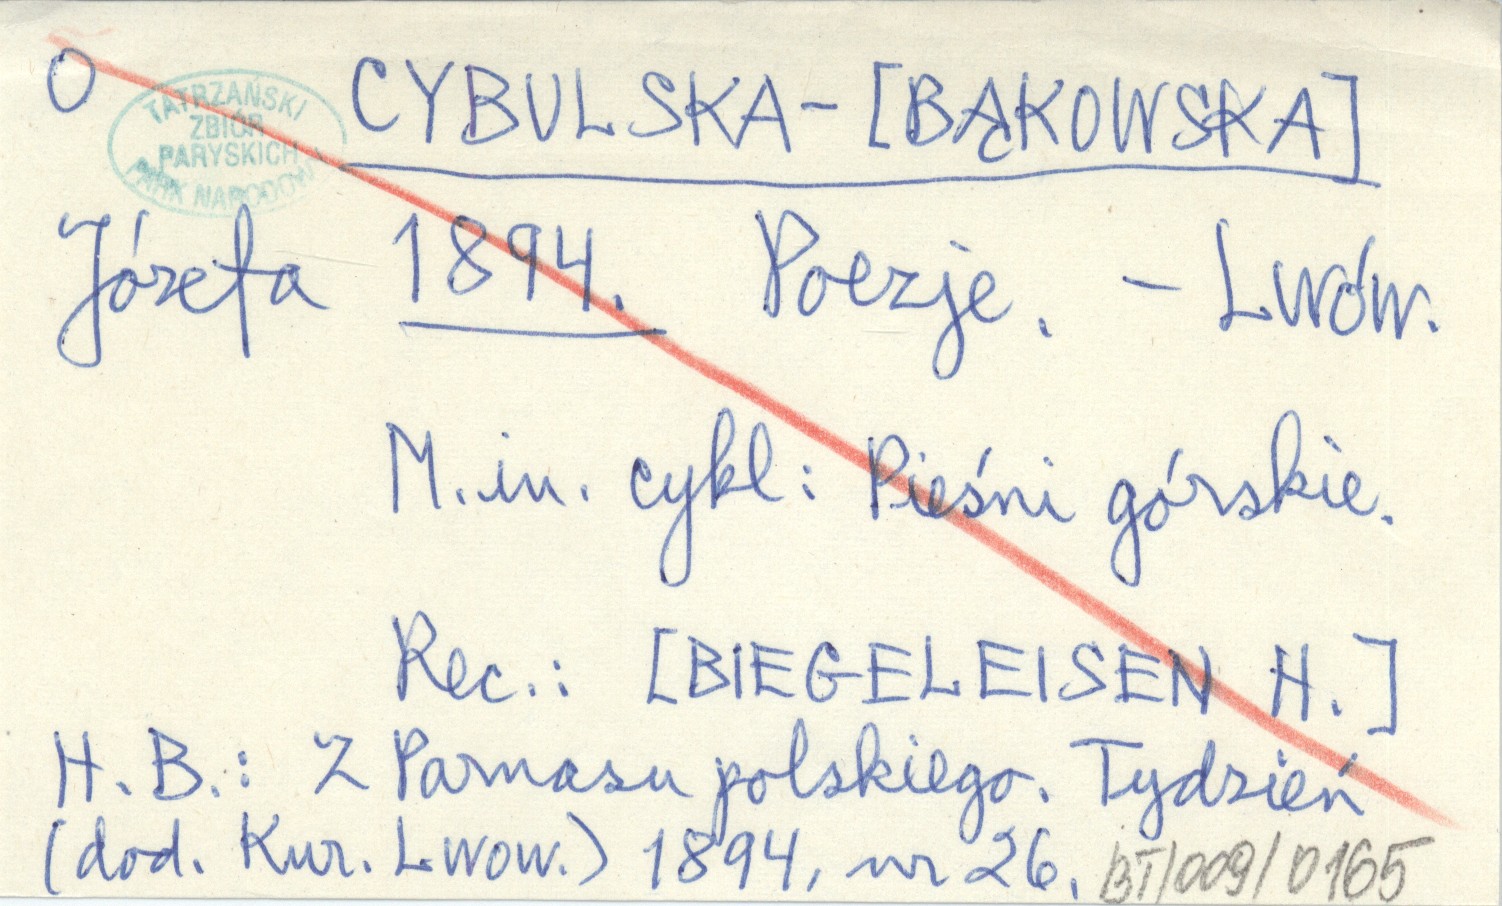 O
TATRZAŃSKI
ZBIÓR
PARYSKICH
PARK NARODOW
CYBULSKA-[BĄKOWSKA]
Józefa 1894. Poezje. - Lwów.
M.in. cykl: Pieśni górskie.
Rec.: [BIEGELEISEN H.]
H.B.: Z Parnasu polskiego. Tydzień
(dod. Kur. Lwow.) 1894, nr 26.
BT/009/0165